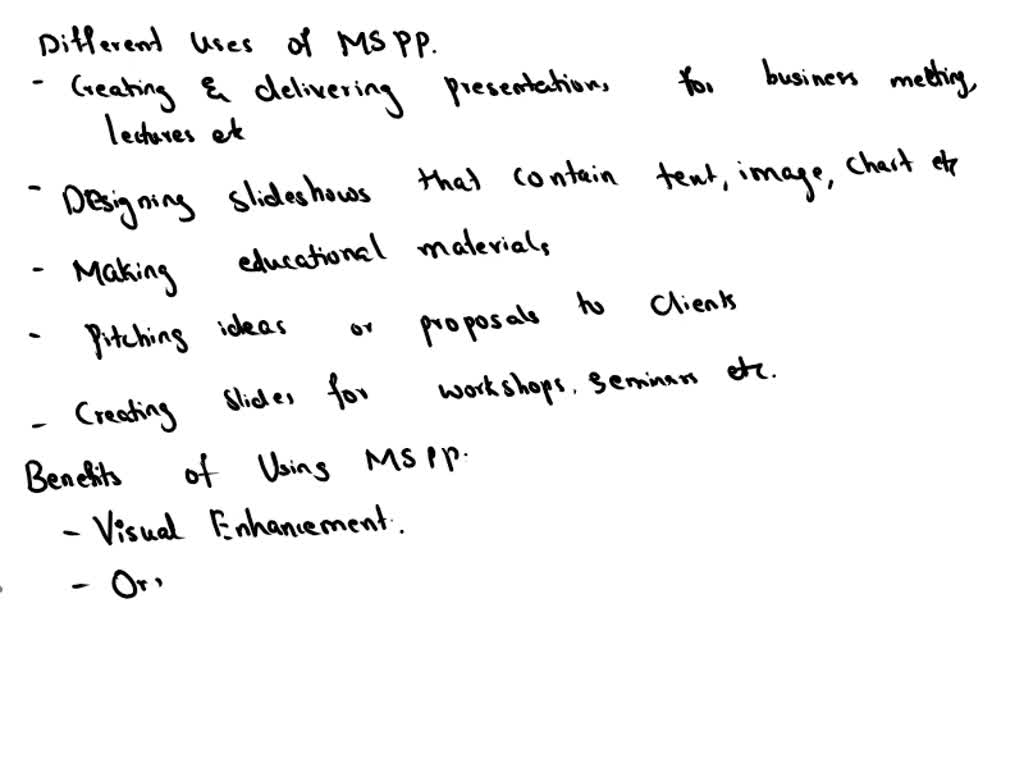 Different Uses of MSPP.
- Creating & delivering presentations for business meeting,
lectures etc
- Designing slideshows that contain text, image, chart etc
- Making educational materials
- Pitching ideas or proposals to clients
- Creating slides for workshops, seminars etc.
Benefits of Using MSPP.
- Visual Enhancement.
- Or